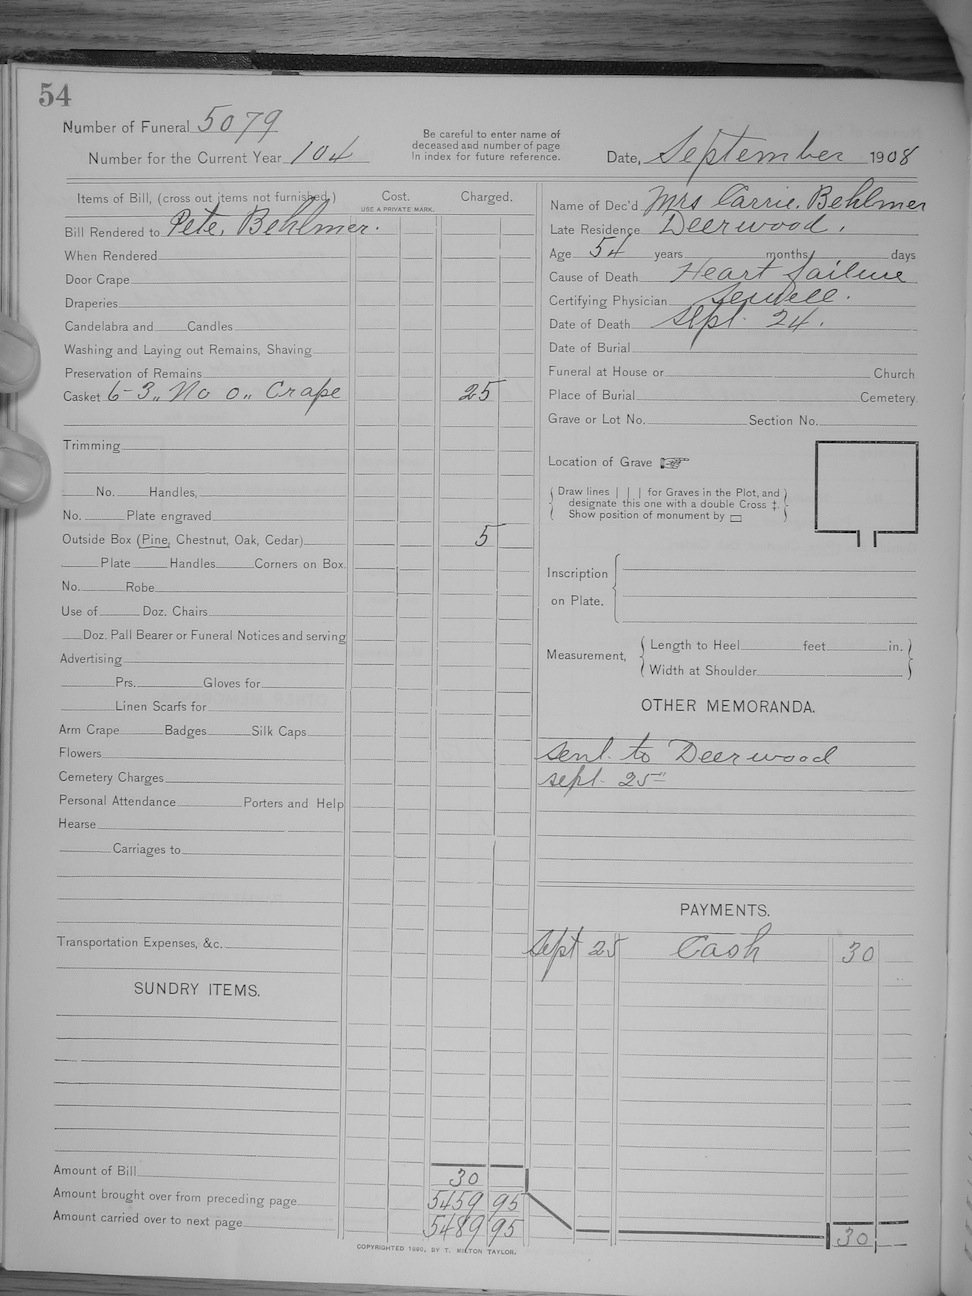 54
Number of Funeral 5079
Number for the Current Year 104
Be careful to enter name of
deceased and number of page
In index for future reference.
Date, September 1908
Items of Bill, (cross out items not furnished.) Cost. Charged.
USE A PRIVATE MARK.
Bill Rendered to Pete, Behlmer.
When Rendered
Door Crape
Draperies
Candelabra and Candles
Washing and Laying out Remains, Shaving
Preservation of Remains
Casket 6-3,, No 0,, Crape 25
Trimming
No. Handles,
No. Plate engraved
Outside Box (Pine, Chestnut, Oak, Cedar) 5
Plate Handles Corners on Box.
No. Robe
Use of Doz. Chairs
Doz. Pall Bearer or Funeral Notices and serving
Advertising
Prs. Gloves for
Linen Scarfs for
Arm Crape Badges Silk Caps
Flowers
Cemetery Charges
Personal Attendance Porters and Help
Hearse
Carriages to
Transportation Expenses, &c.
SUNDRY ITEMS.
Amount of Bill 30
Amount brought over from preceding page 5459 95
Amount carried over to next page 5489 95
Name of Dec'd Mrs Carrie, Behlmer
Late Residence Deerwood.
Age 54 years months days
Cause of Death Heart failure
Certifying Physician Sewell.
Date of Death Sept. 24.
Date of Burial
Funeral at House or Church
Place of Burial Cemetery.
Grave or Lot No. Section No.
Location of Grave ☞
Draw lines | | | for Graves in the Plot, and
designate this one with a double Cross ‡.
Show position of monument by ▭
Inscription
on Plate.
Measurement, Length to Heel feet in.
Width at Shoulder
OTHER MEMORANDA.
sent to Deerwood
sept. 25"
PAYMENTS.
Sept 25 Cash 30
30
COPYRIGHTED 1890, BY T. MILTON TAYLOR.